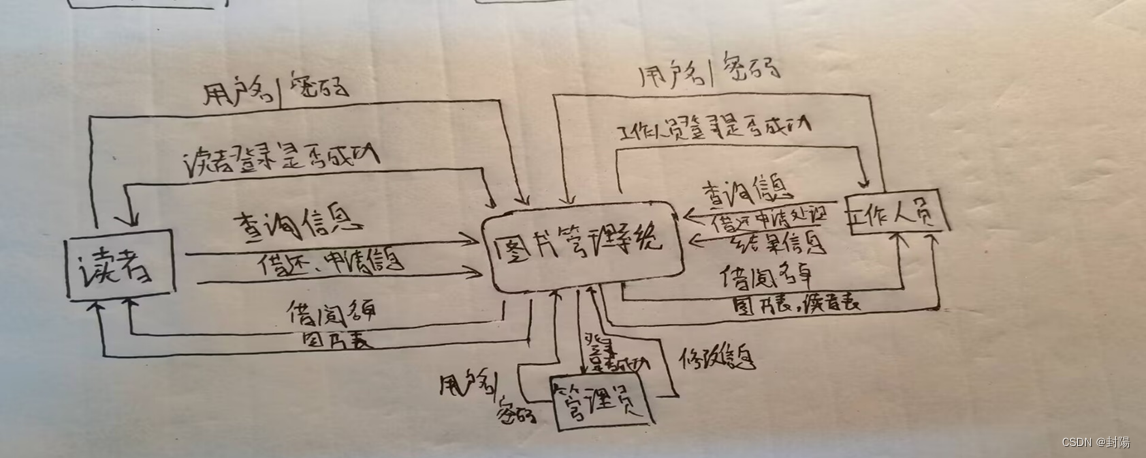 用户名/密码
用户名/密码
读者登录是否成功
工作人员登录是否成功
查询信息
借还、申请信息
读者
图书管理系统
查询信息
借还申请处理
结果信息
工作人员
借阅名单
图书表
借阅名单
图书表,读者表
用户名/
密码
登录
是否成功
修改信息
管理员
CSDN @封陽